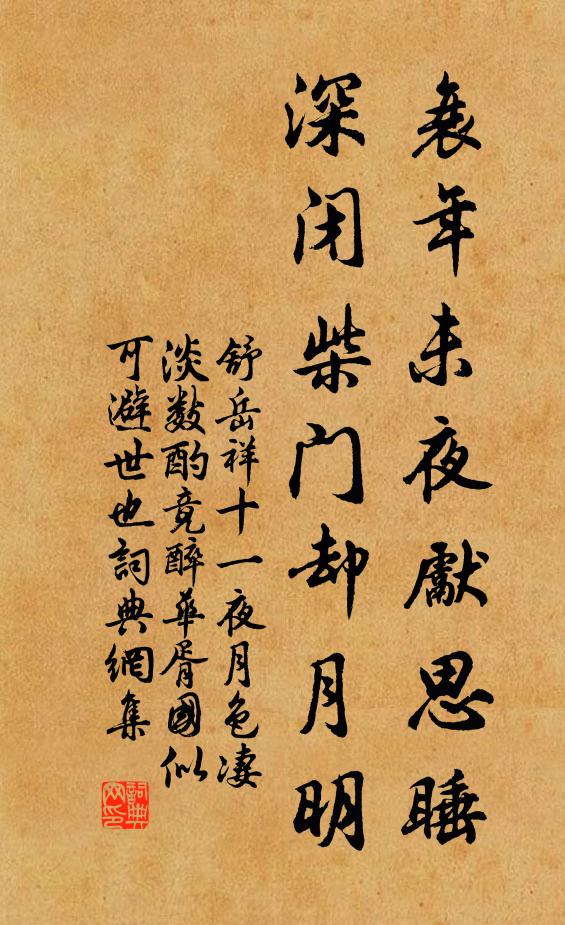 衰年未夜獻思睡
深闭柴门却月明
舒岳祥十一夜月色凄
淡数酌竟醉華胥國似
可避世也詞典網集
詞典
网印